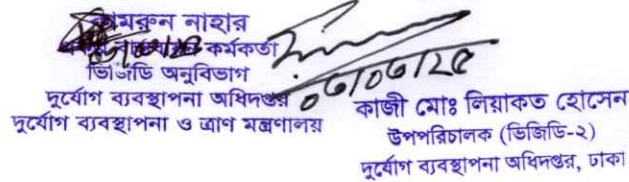 কামরুন নাহার
কর্মকর্তা
ভিজিডি অনুবিভাগ
দুর্যোগ ব্যবস্থাপনা অধিদপ্তর
দুর্যোগ ব্যবস্থাপনা ও ত্রাণ মন্ত্রণালয়
কাজী মোঃ লিয়াকত হোসেন
উপপরিচালক (ভিজিডি-২)
দুর্যোগ ব্যবস্থাপনা অধিদপ্তর, ঢাকা